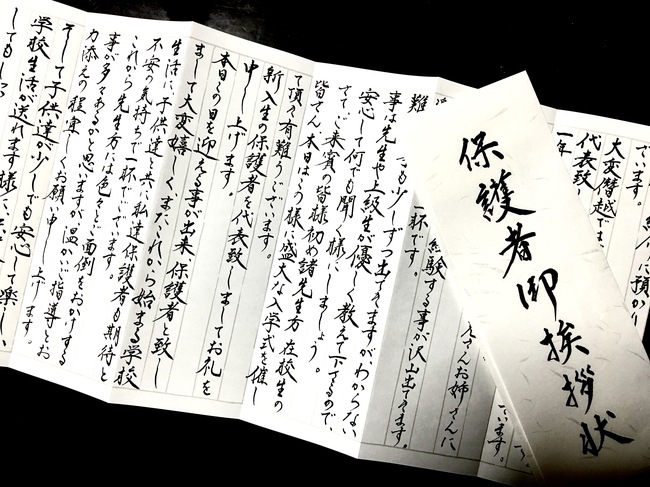 保護者御挨拶状
でいます。
紹介に預かり
大変僭越では
代表致
一年
ています。
さんお姉さんに
経験する事が沢山出て来ます。
一杯です。
難
も少しずつ出て来ますがわからない
事は先生や上級生が優しく教えて下さるので、
安心して何でも聞く様にしましょう。
ご来賓の皆様初め諸先生方 在校生の
皆さん 本日はこの様に盛大な入学式を催し
て頂き有難うございます。
新入生の保護者を代表致しましてお礼を
申し上げます。
本日この日を迎える事が出来 保護者と致し
まして大変嬉しく、またこれから始まる学校
生活に子供達と共に私達保護者も期待と
不安の気持ちで一杯でいます。
これから先生方には色々とご面倒をおかけする
事が多々あるかと思いますが温かいご指導とお
力添えの程宜しくお願い申し上げます。
そして子供達が少しでも安心して楽しい
学校生活が送れます様に